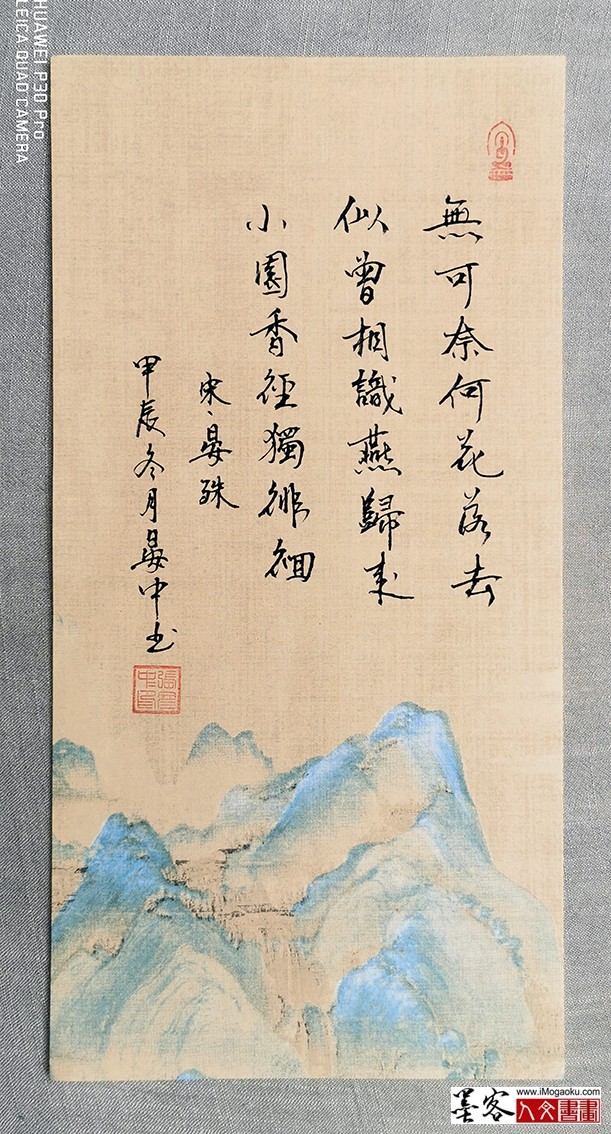 無可奈何花落去
似曾相識燕歸来
小園香徑獨徘徊
宋、晏殊
甲辰冬月晏中书
HUAWEI P30 Pro
LEICA QUAD CAMERA
www.iMogaoku.com
墨客人文書畫